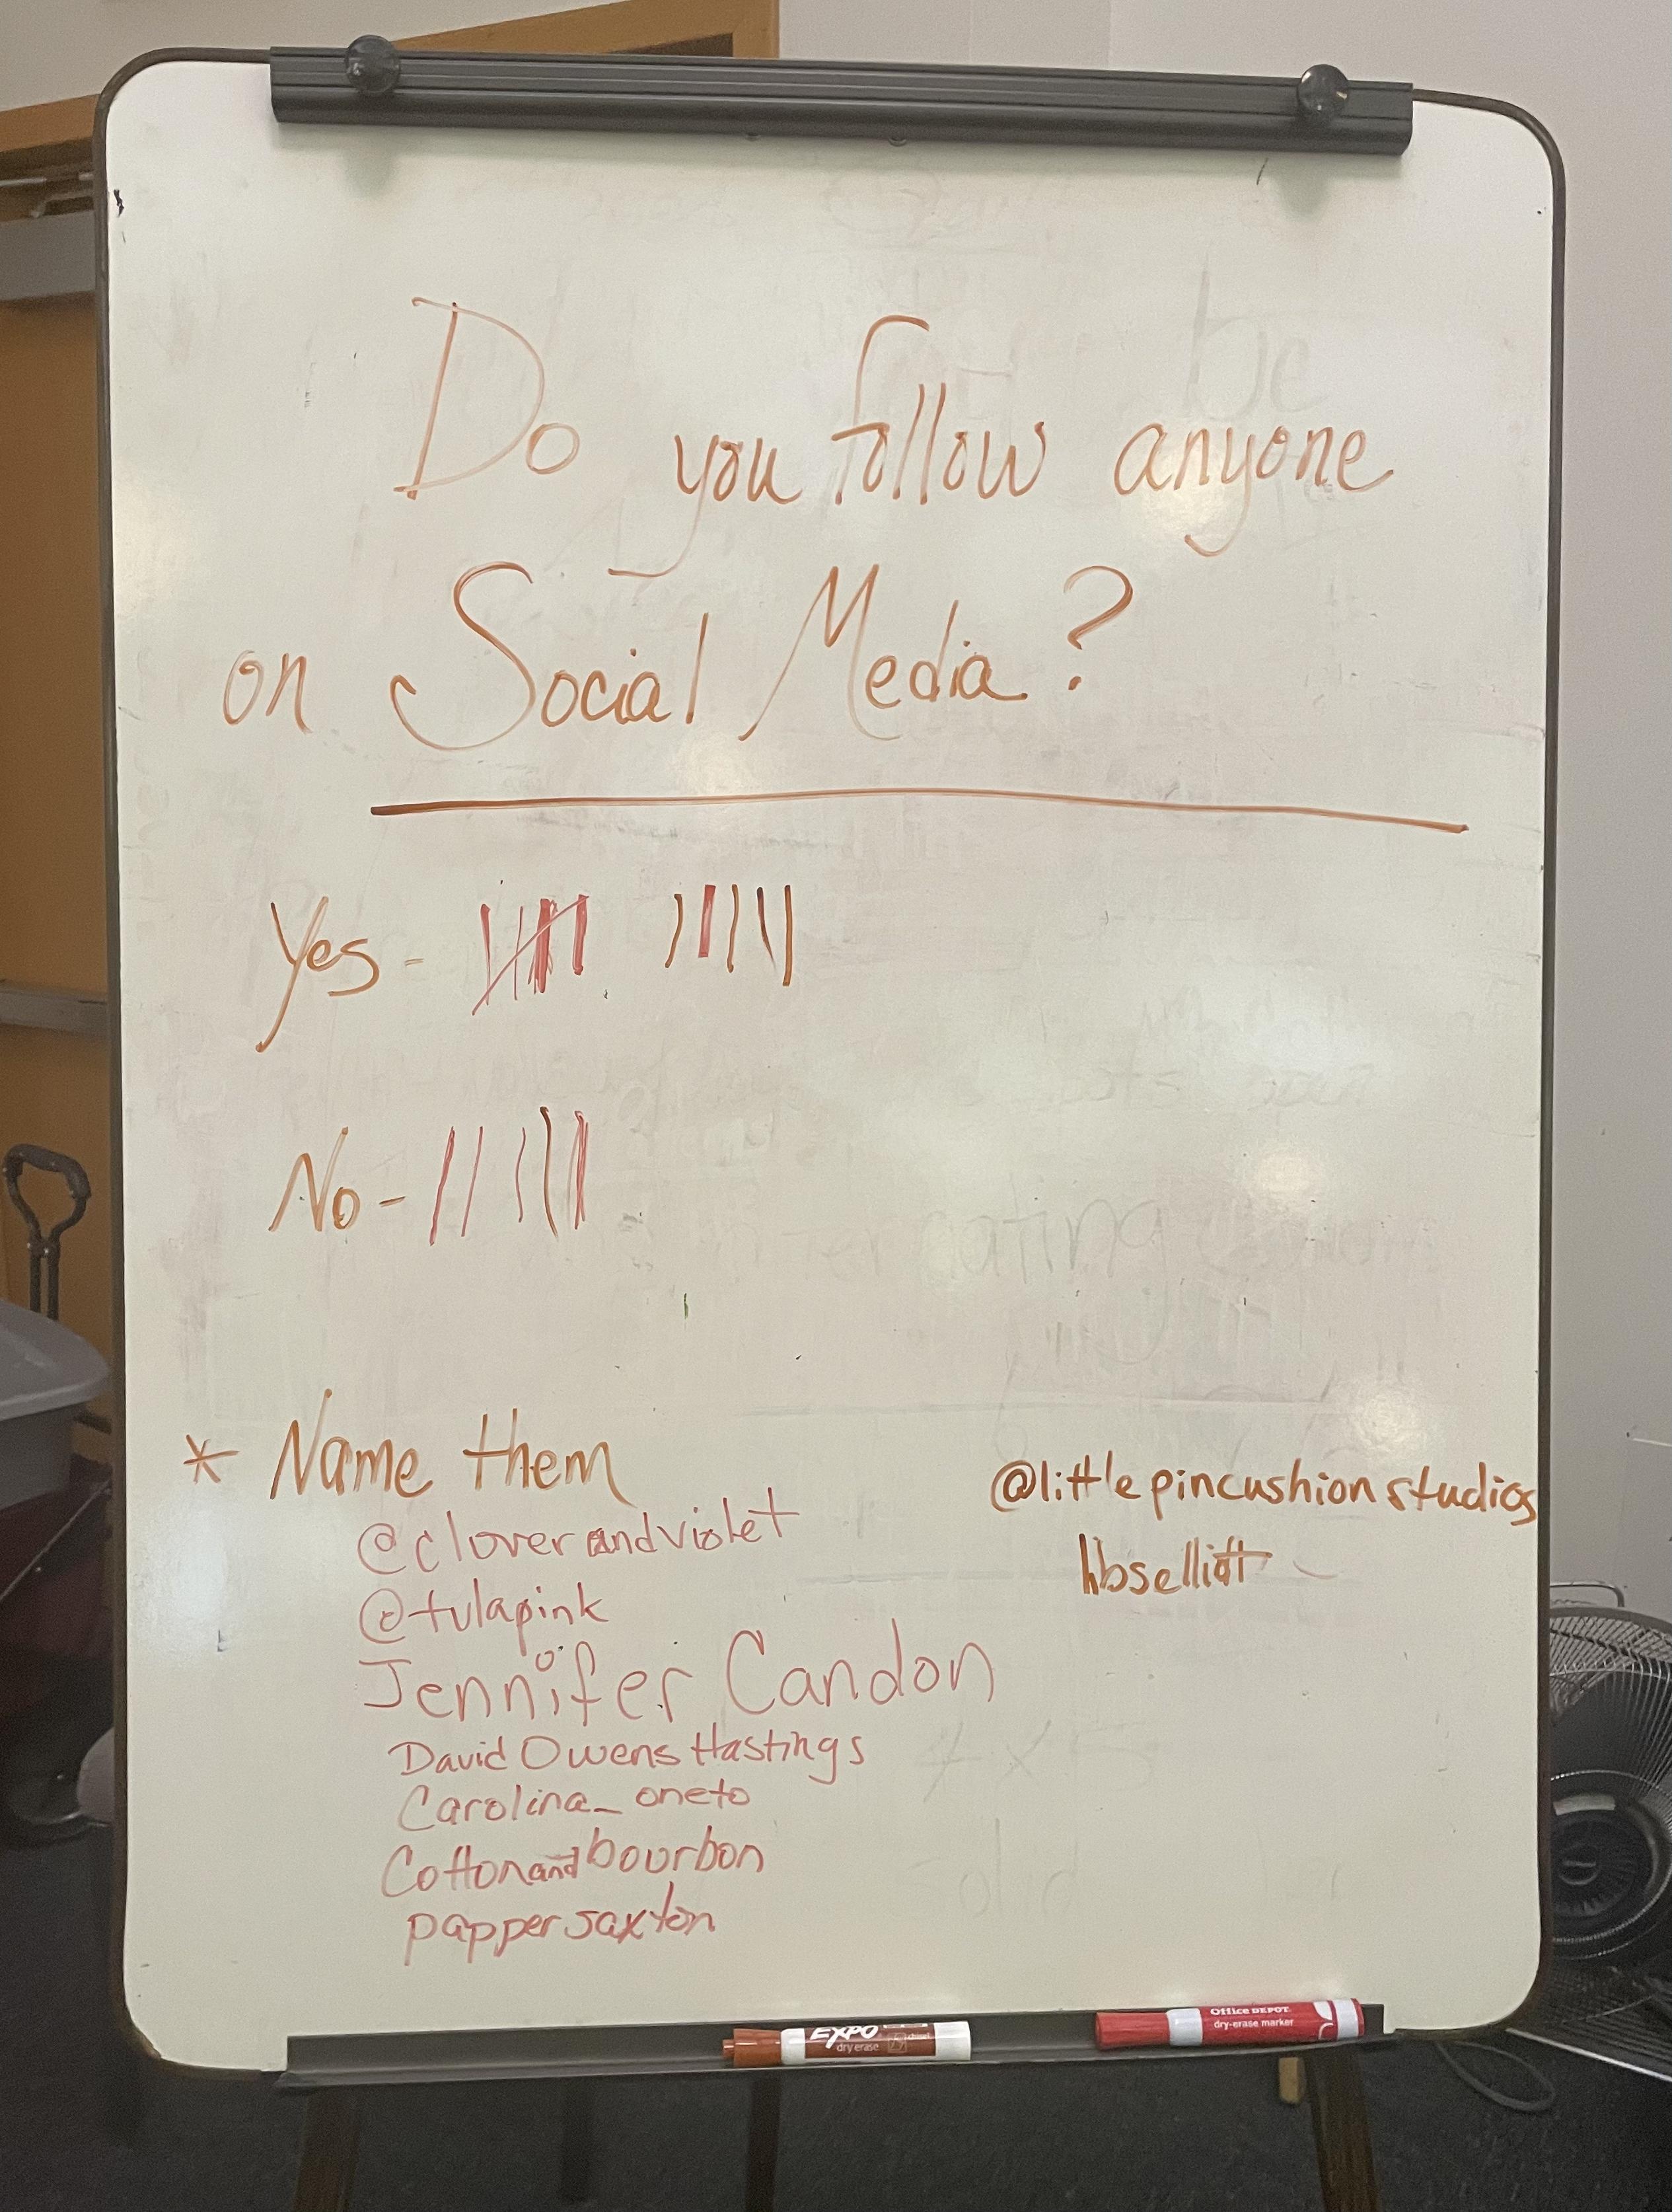 Do you follow anyone
on Social Media?
Yes - 
No - 
* Name them
@cloverandviolet
@tulapink
Jennifer Candon
David Owens Hastings
Carolina_oneto
Cottonandbourbon
pappersaxton
@littlepincushionstudios
hbselliott
EXPO
dry erase
chisel
Office DEPOT
dry-erase marker